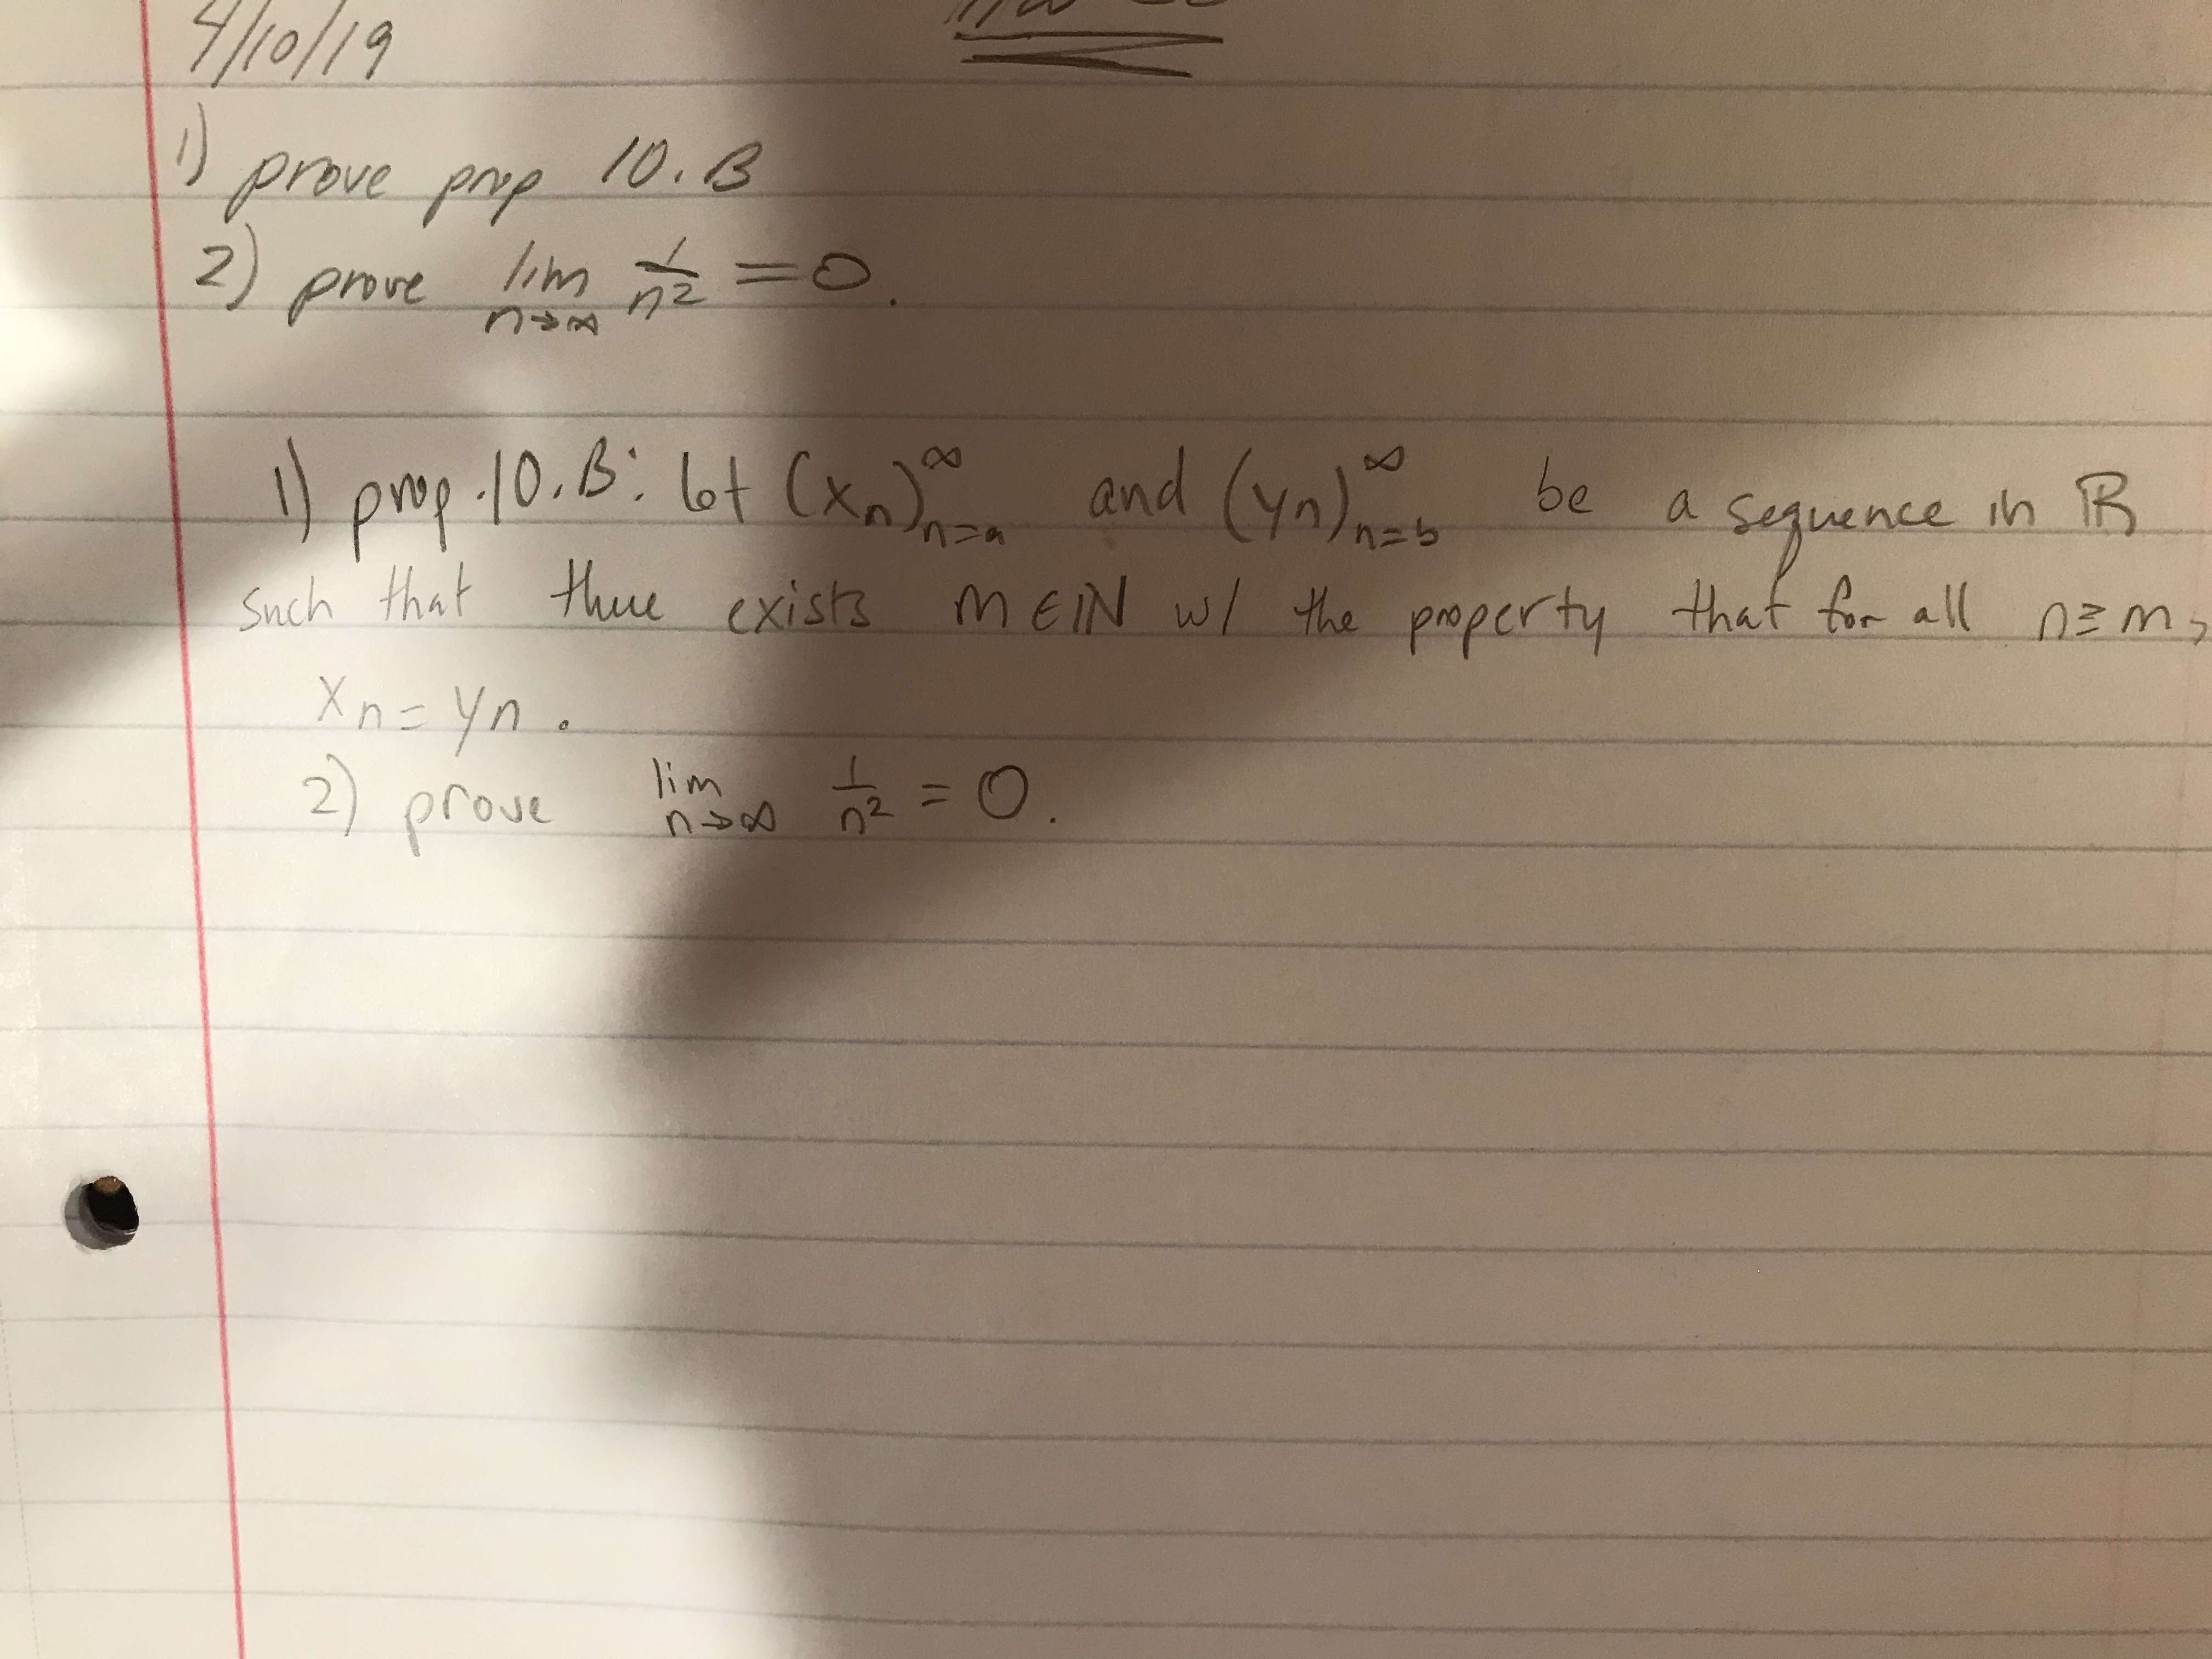 4/10/19
1) prove prop 10.B
2) prove lim n→∞ 1/n² = 0.
1) prop. 10.B: let (xn)∞n=a and (yn)∞n=b be a sequence in ℝ
such that there exists m ∈ ℕ w/ the property that for all n ≥ m,
xn = yn.
2) prove lim n→∞ 1/n² = 0.